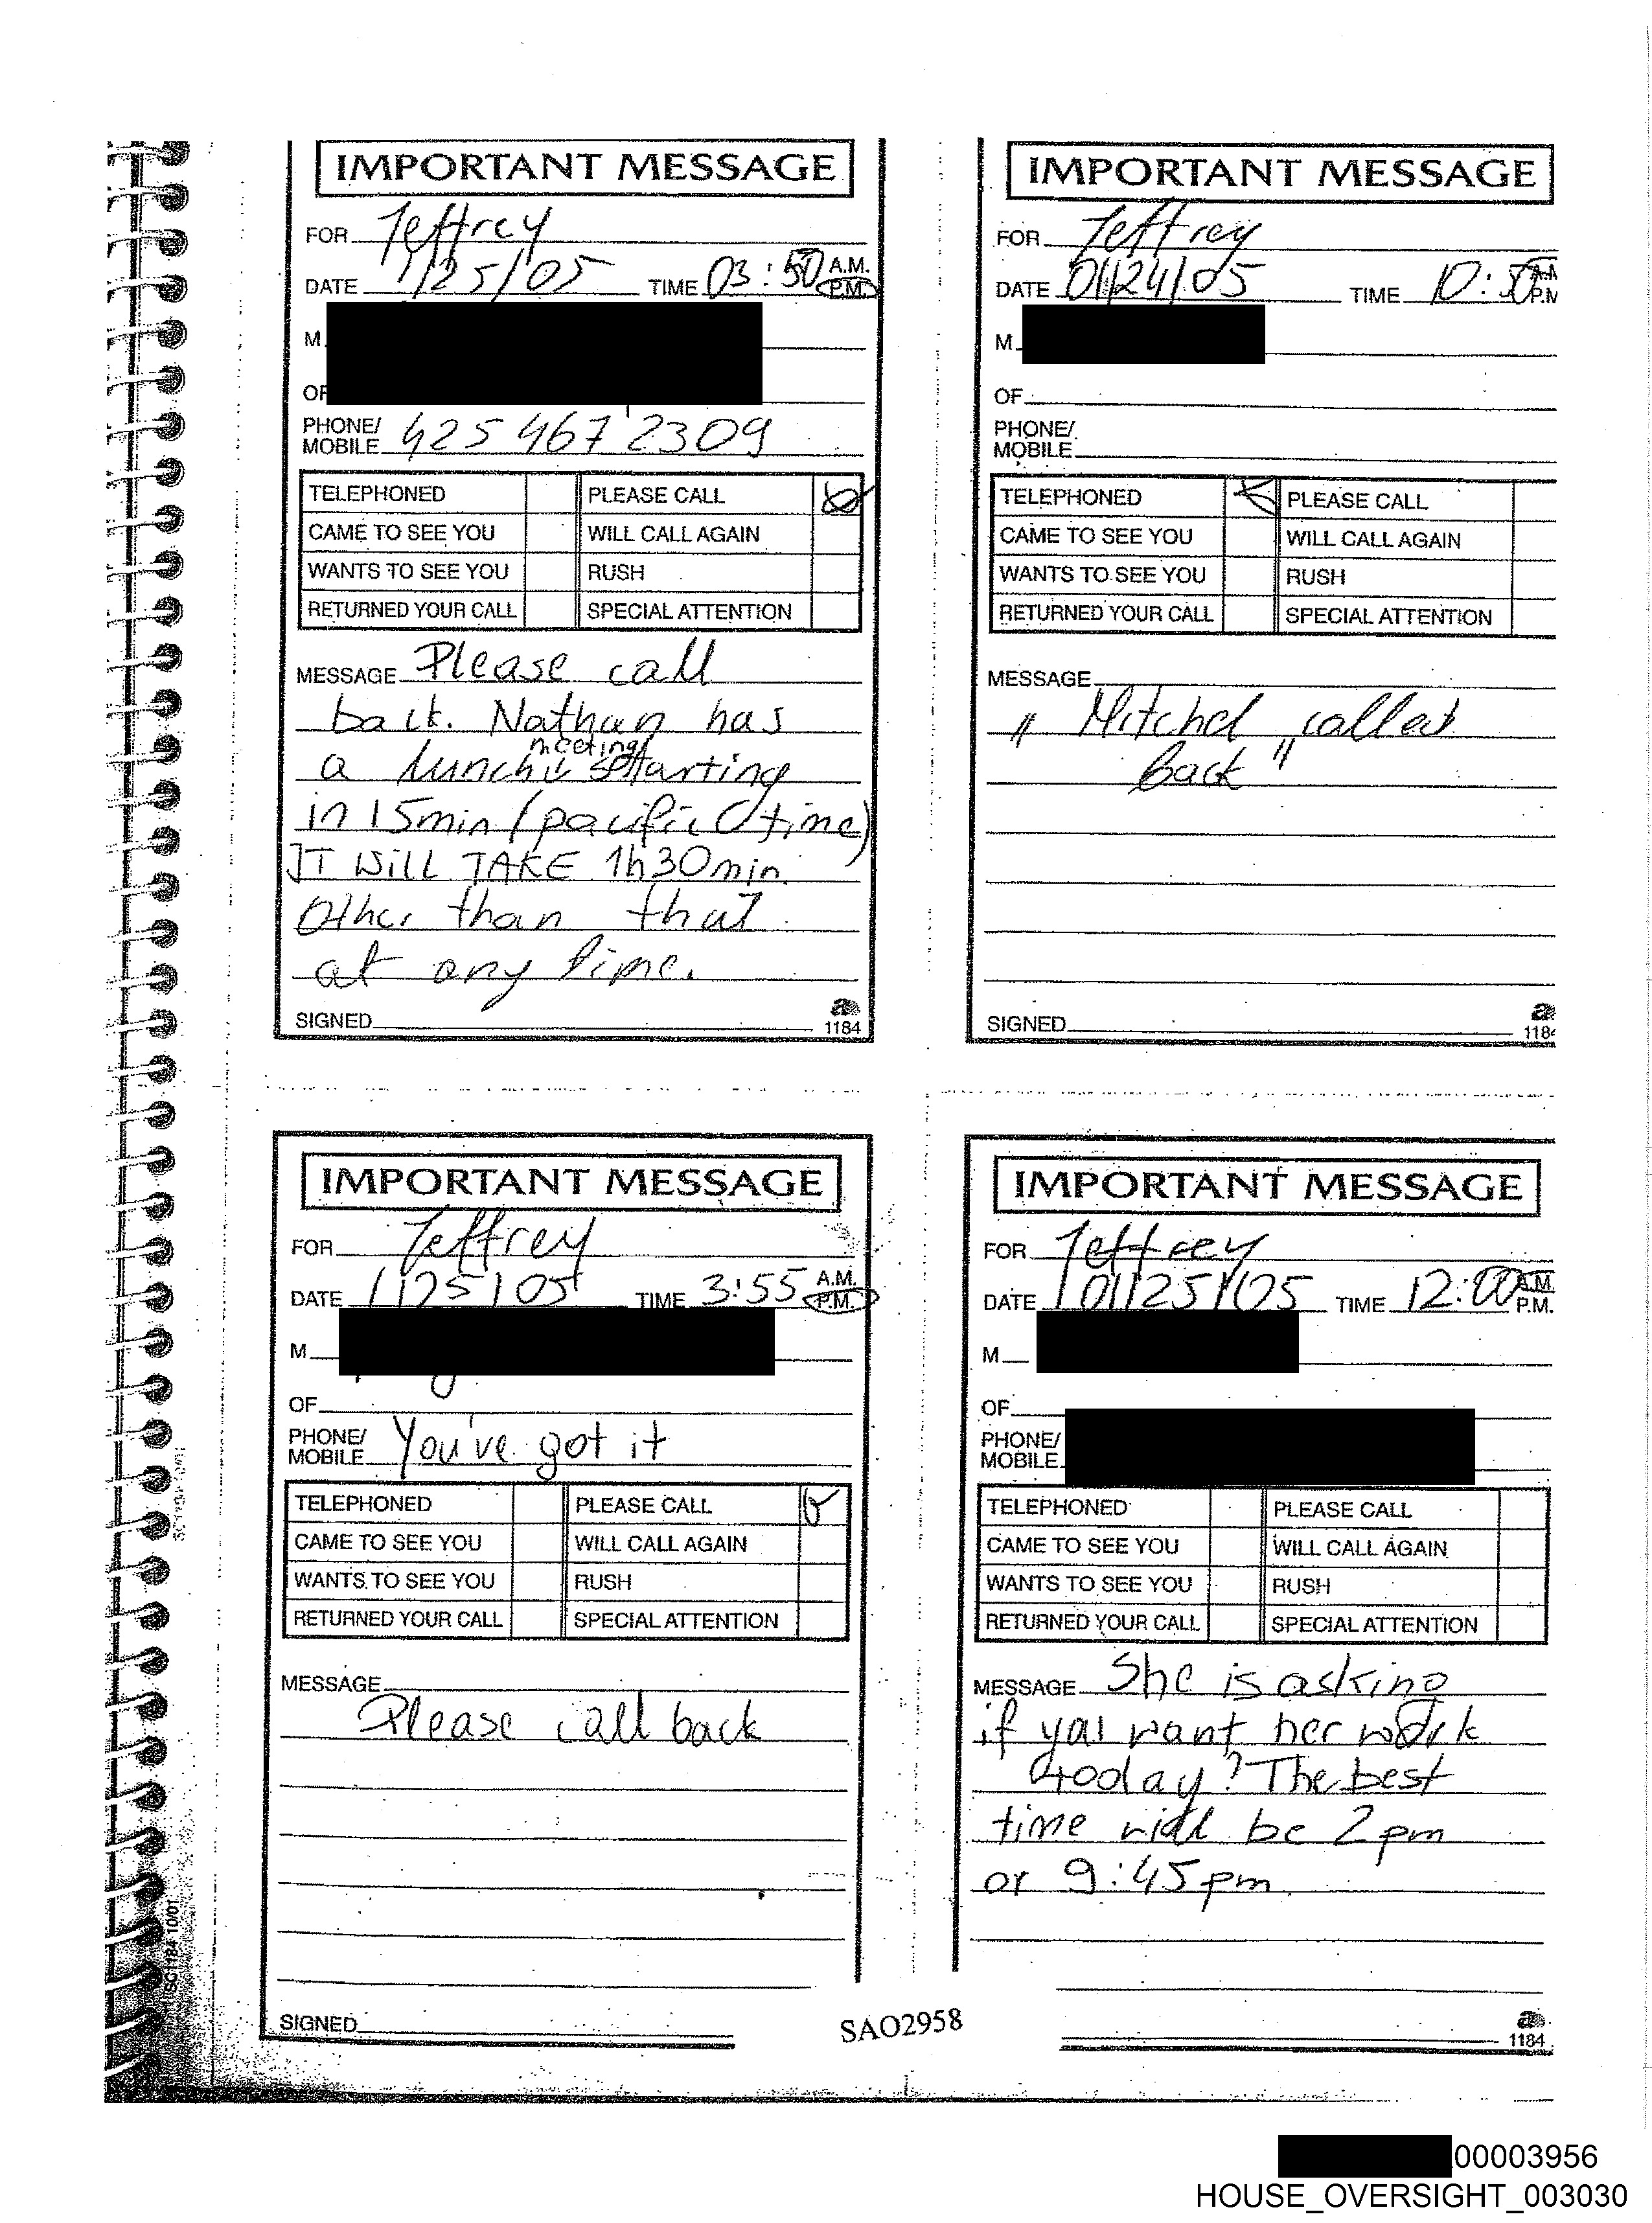 IMPORTANT MESSAGE
FOR Jeffrey
DATE 1/25/05 TIME 03:50 A.M. P.M.
M
OF
PHONE/ MOBILE 425 467 2309
TELEPHONED PLEASE CALL
CAME TO SEE YOU WILL CALL AGAIN
WANTS TO SEE YOU RUSH
RETURNED YOUR CALL SPECIAL ATTENTION
MESSAGE Please call
back. Nathan has
meeting
a lunch starting
in 15min (pacific time)
IT WiLL TAKE 1h30min.
Other than that
at any time.
SIGNED
1184
IMPORTANT MESSAGE
FOR Jeffrey
DATE 01/24/05 TIME 10:50 P.M
M
OF
PHONE/ MOBILE
TELEPHONED PLEASE CALL
CAME TO SEE YOU WILL CALL AGAIN
WANTS TO SEE YOU RUSH
RETURNED YOUR CALL SPECIAL ATTENTION
MESSAGE
" Mitchel called
back "
SIGNED
118
IMPORTANT MESSAGE
FOR Jeffrey
DATE 1/25/05 TIME 3:55 A.M. P.M.
M
OF
PHONE/ MOBILE You've got it
TELEPHONED PLEASE CALL
CAME TO SEE YOU WILL CALL AGAIN
WANTS TO SEE YOU RUSH
RETURNED YOUR CALL SPECIAL ATTENTION
MESSAGE
Please call back
SIGNED
IMPORTANT MESSAGE
FOR Jeffrey
DATE 01/25/05 TIME 12:00 A.M. P.M.
M
OF
PHONE/ MOBILE
TELEPHONED PLEASE CALL
CAME TO SEE YOU WILL CALL AGAIN
WANTS TO SEE YOU RUSH
RETURNED YOUR CALL SPECIAL ATTENTION
MESSAGE She is asking
if you want her work
today? The best
time will be 2 pm
or 9:45 pm
1184
SC1184 10/01
SAO2958
00003956
HOUSE_OVERSIGHT_003030